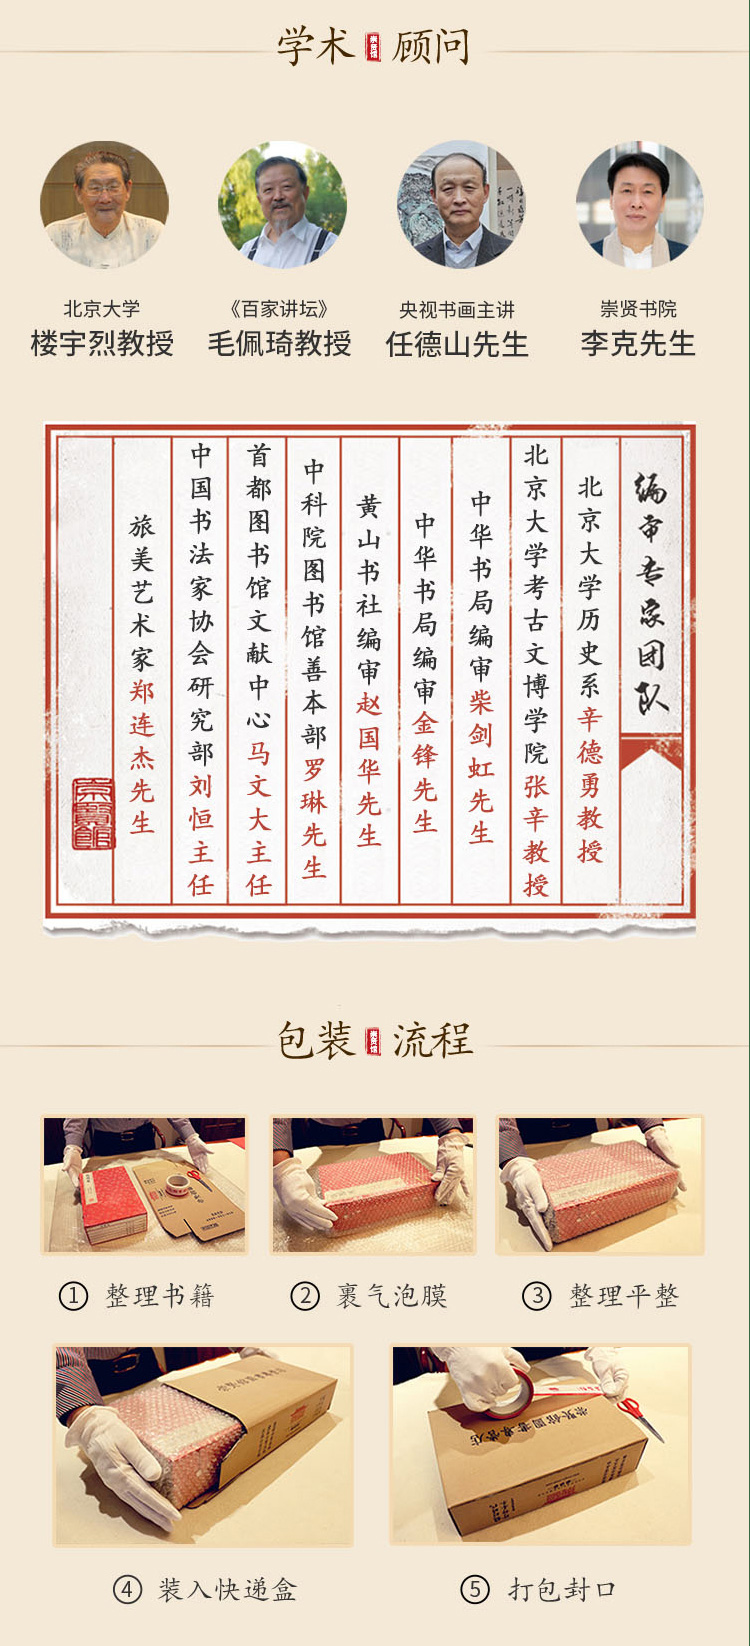 学术 崇贤馆 顾问
北京大学
楼宇烈教授
《百家讲坛》
毛佩琦教授
央视书画主讲
任德山先生
崇贤书院
李克先生
编审专家团队
北京大学历史系辛德勇教授
北京大学考古文博学院张辛教授
中华书局编审柴剑虹先生
中华书局编审金锋先生
黄山书社编审赵国华先生
中科院图书馆善本部罗琳先生
首都图书馆文献中心马文大主任
中国书法家协会研究部刘恒主任
旅美艺术家郑连杰先生
包装 崇贤馆 流程
① 整理书籍
② 裹气泡膜
③ 整理平整
④ 装入快递盒
⑤ 打包封口